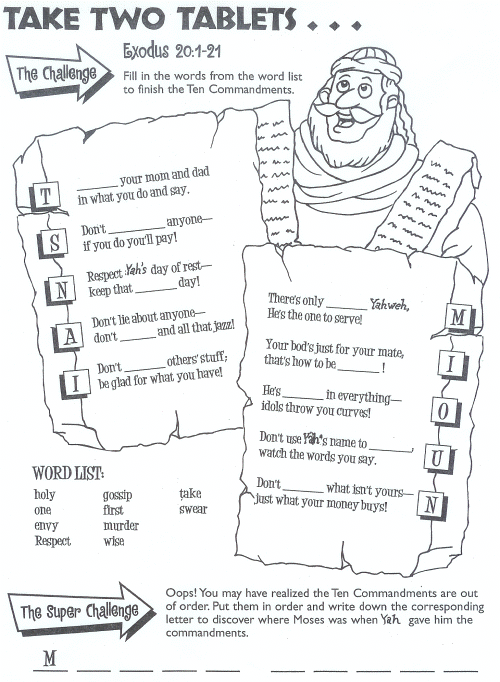 TAKE TWO TABLETS . . .
Exodus 20:1-21
The Challenge
Fill in the words from the word list
to finish the Ten Commandments.
T
______ your mom and dad
in what you do and say.
S
Don't ________ anyone—
if you do you'll pay!
N
Respect Yah's day of rest—
keep that ______ day!
A
Don't lie about anyone—
don't ______ and all that jazz!
I
Don't ______ others' stuff;
be glad for what you have!
There's only ______ Yahweh,
He's the one to serve!
M
Your bod's just for your mate,
that's how to be ______ !
I
He's ______ in everything—
idols throw you curves!
O
Don't use Yah's name to ______,
watch the words you say.
U
Don't ______ what isn't yours—
just what your money buys!
N
WORD LIST:
holy gossip take
one first swear
envy murder
Respect wise
The Super Challenge
Oops! You may have realized the Ten Commandments are out
of order. Put them in order and write down the corresponding
letter to discover where Moses was when Yah gave him the
commandments.
M ____ ____ ____ ____ ____ ____ ____ ____ ____